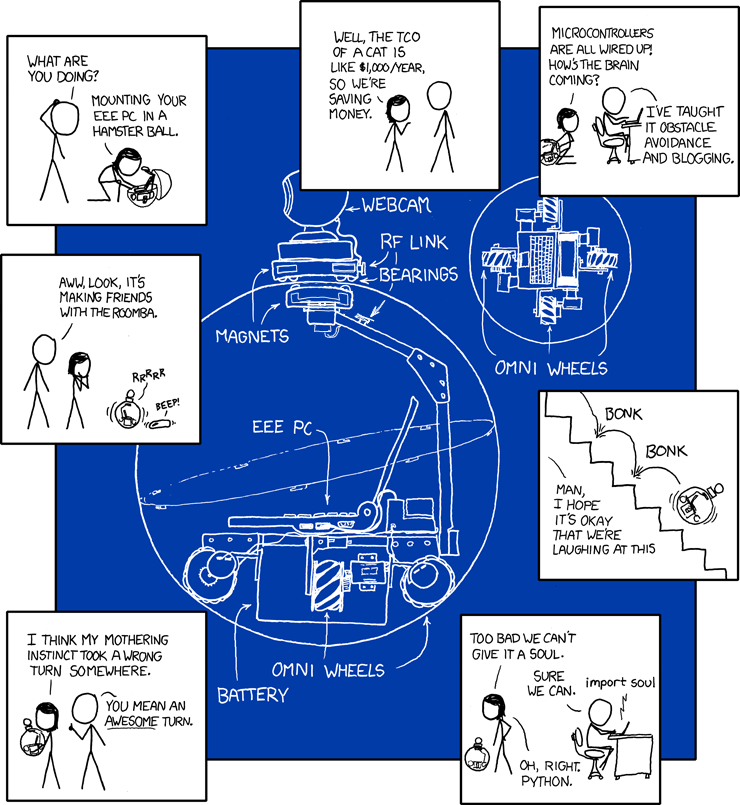 WHAT ARE
YOU DOING?
MOUNTING YOUR
EEE PC IN A
HAMSTER BALL.
WELL, THE TCO
OF A CAT IS
LIKE $1,000/YEAR,
SO WE'RE
SAVING
MONEY.
MICROCONTROLLERS
ARE ALL WIRED UP!
HOW'S THE BRAIN
COMING?
I'VE TAUGHT
IT OBSTACLE
AVOIDANCE
AND BLOGGING.
WEBCAM
RF LINK
BEARINGS
MAGNETS
OMNI WHEELS
AWW, LOOK, IT'S
MAKING FRIENDS
WITH THE ROOMBA.
RRRRR
BEEP!
EEE PC
BONK
BONK
MAN,
I HOPE
IT'S OKAY
THAT WE'RE
LAUGHING AT THIS
OMNI WHEELS
BATTERY
I THINK MY MOTHERING
INSTINCT TOOK A WRONG
TURN SOMEWHERE.
YOU MEAN AN
AWESOME TURN.
TOO BAD WE CAN'T
GIVE IT A SOUL.
SURE
WE CAN.
import soul
OH, RIGHT.
PYTHON.